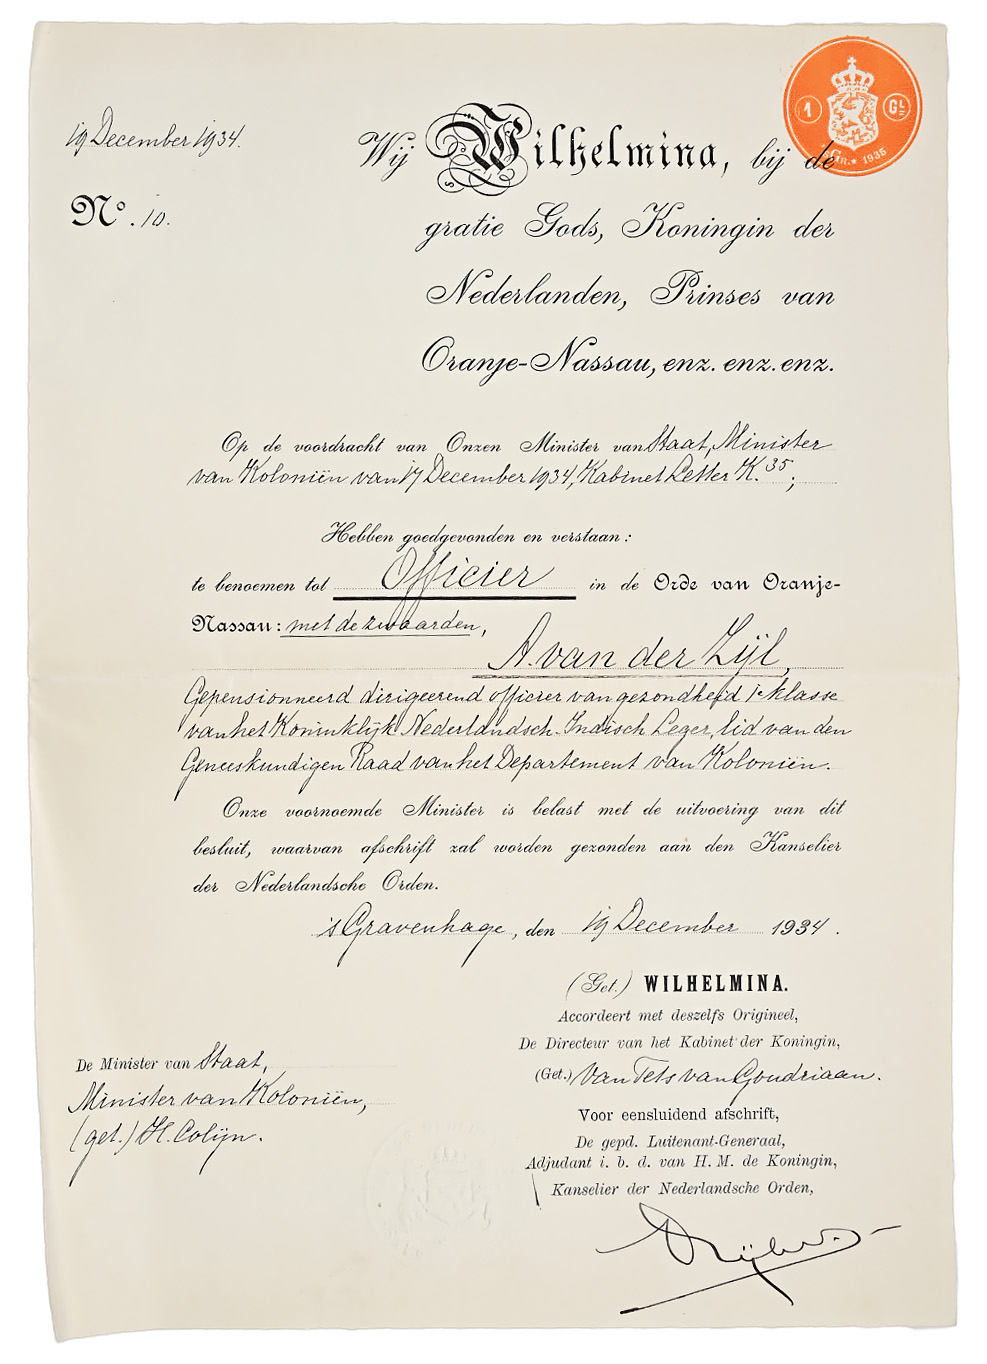 19 December 1934.
No. 10.
1 GL
GR.★ 1935
Wij Wilhelmina, bij de
gratie Gods, Koningin der
Nederlanden, Prinses van
Oranje-Nassau, enz. enz. enz.
Op de voordracht van Onzen Minister van Staat, Minister
van Koloniën van 17 December 1934, Kabinet Letter K.35;
Hebben goedgevonden en verstaan:
te benoemen tot Officier in de Orde van Oranje-
Nassau: met de zwaarden,
A. van der Zijl,
Gepensionneerd dirigeerend officier van gezondheid 1e klasse
van het Koninklijk Nederlandsch-Indisch Leger, lid van den
Geneeskundigen Raad van het Departement van Koloniën.
Onze voornoemde Minister is belast met de uitvoering van dit
besluit, waarvan afschrift zal worden gezonden aan den Kanselier
der Nederlandsche Orden.
's Gravenhage, den 19 December 1934.
(Get.) WILHELMINA.
Accordeert met deszelfs Origineel,
De Directeur van het Kabinet der Koningin,
(Get.) Van Tets van Goudriaan.
De Minister van Staat,
Minister van Koloniën,
(get.) H. Colijn.
Voor eensluidend afschrift,
De gepd. Luitenant-Generaal,
Adjudant i. b. d. van H. M. de Koningin,
Kanselier der Nederlandsche Orden,